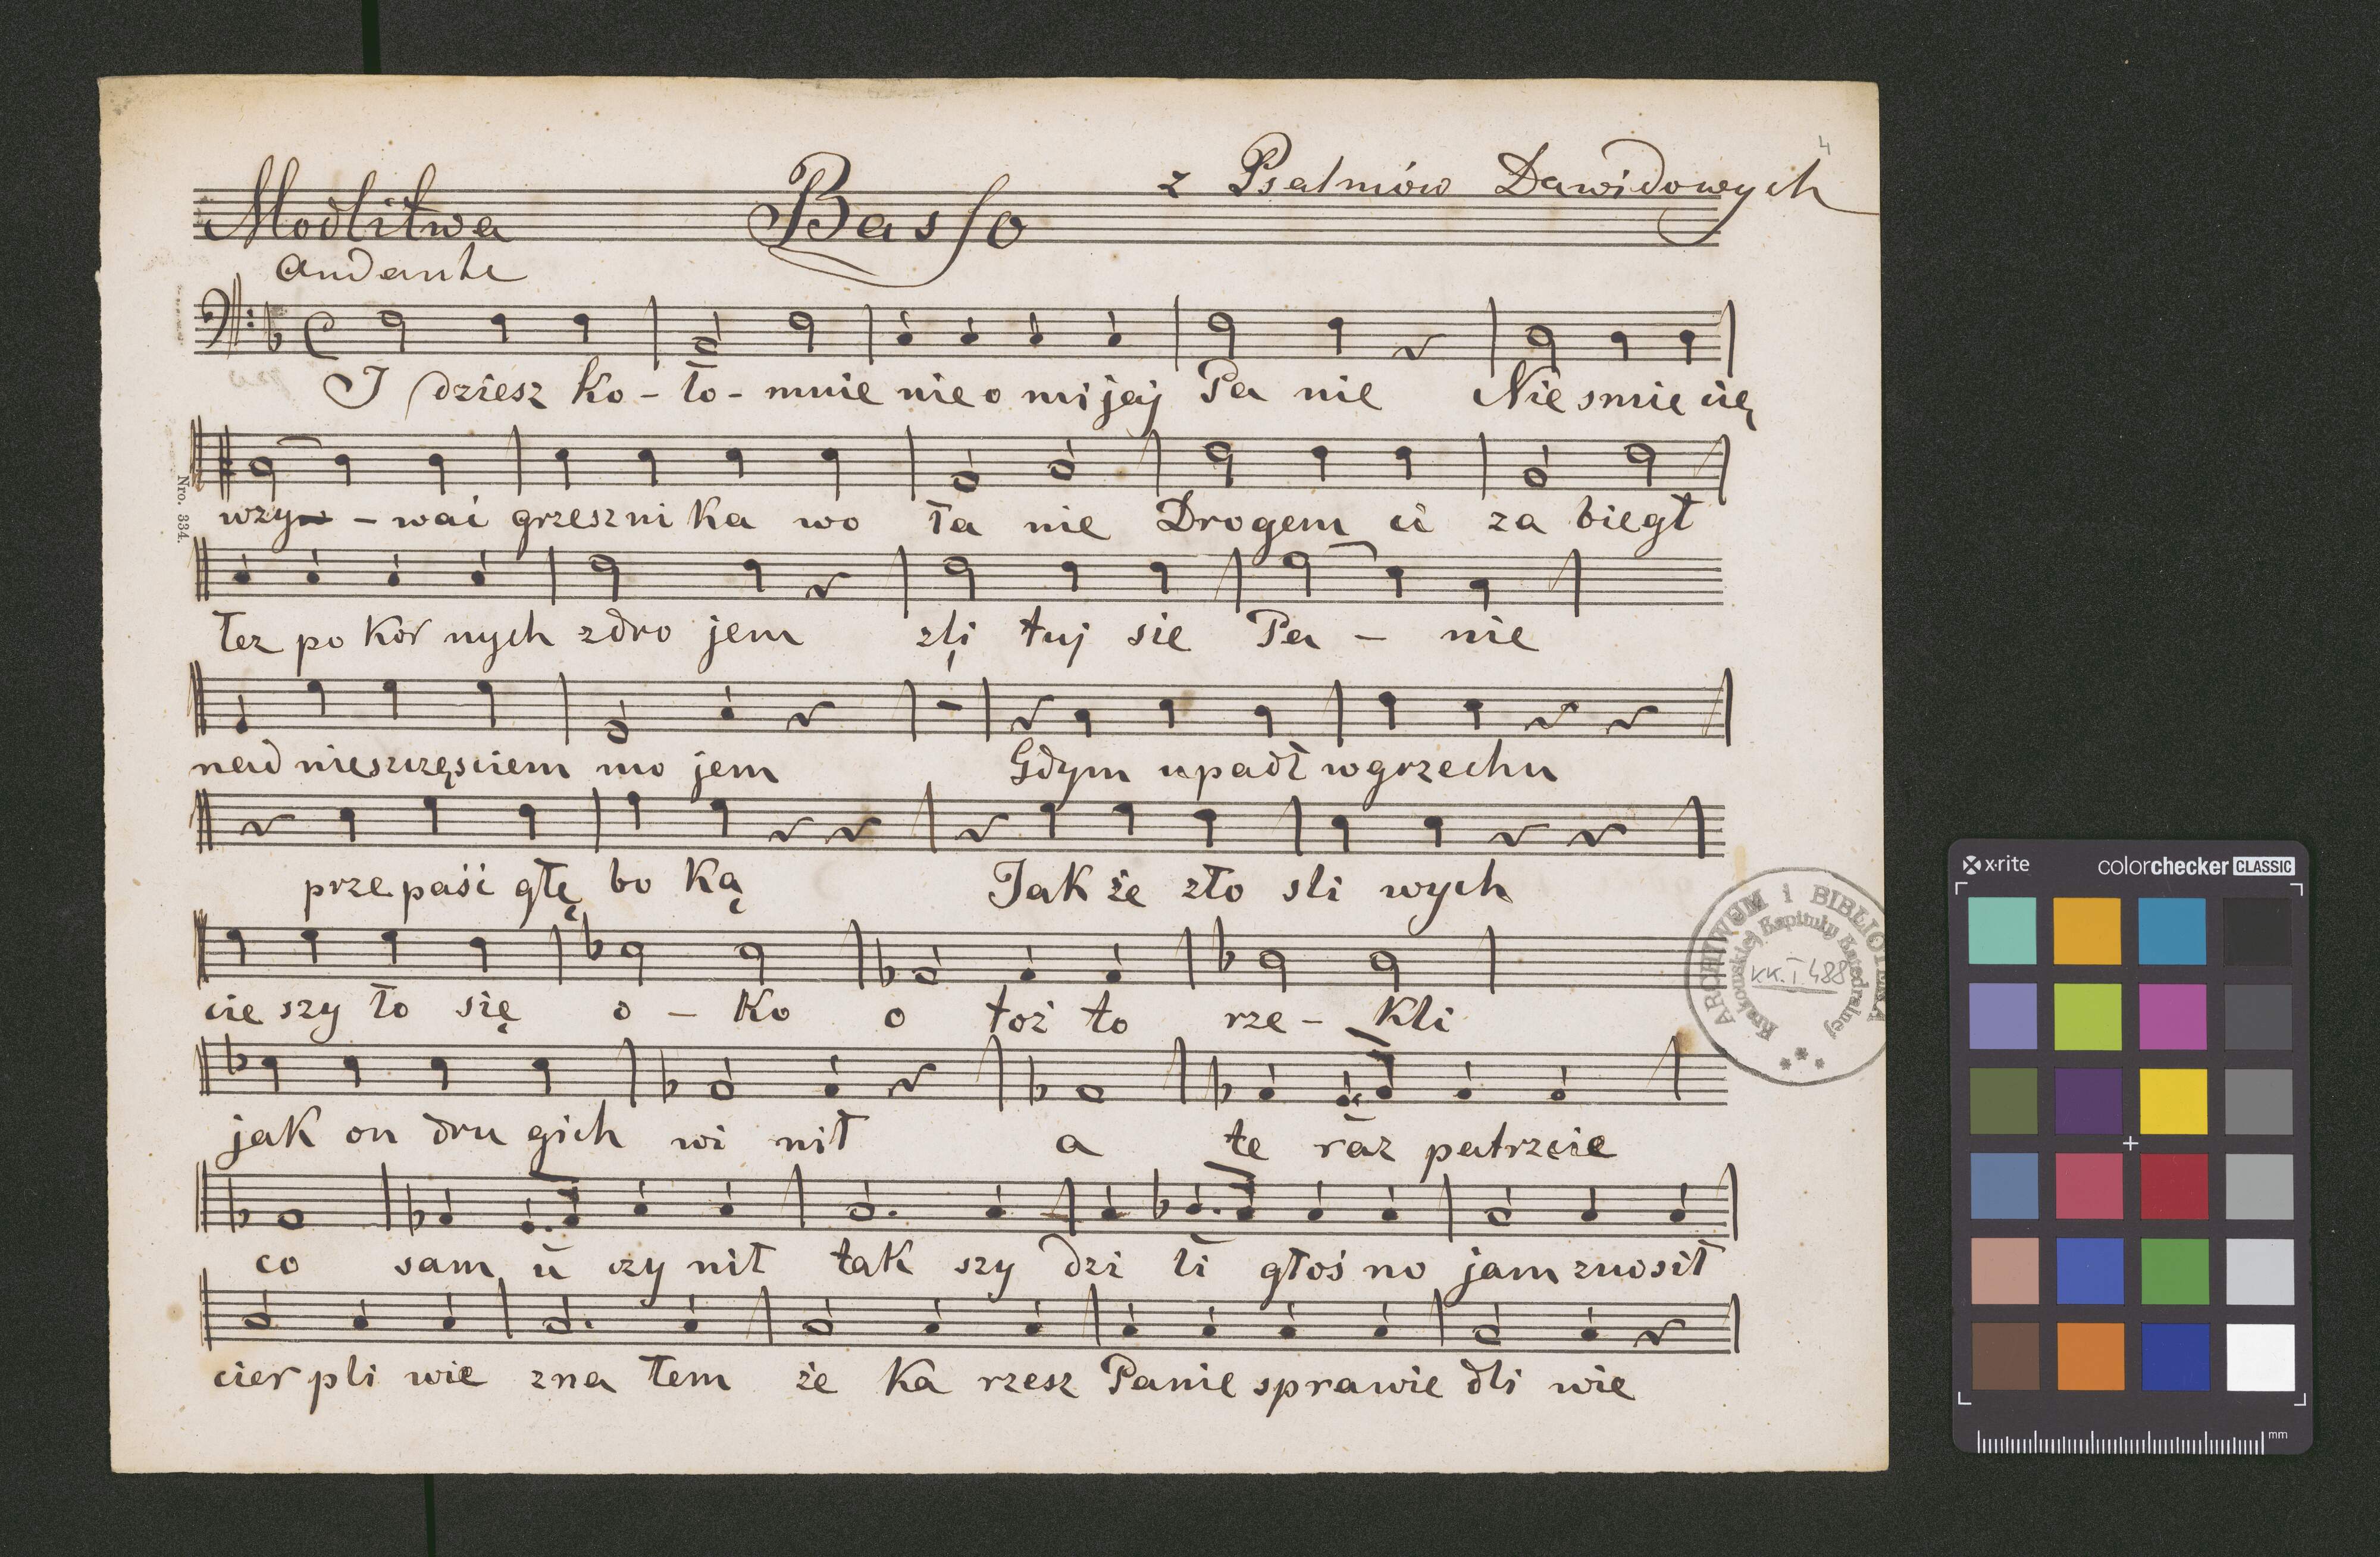 4
z Psalmów Dawidowych
Modlitwa Basso
andante
I dziesz ko - ło - mnie nie o mi jaj Pa nie Nie smie cię
wzyw - wać grzesz ni ka wo ła nie Drogem ci za biegł
łez po kor nych zdro jem zli tuj sie Pa - nie
nad nieszczęsciem mo jem Gdym upadł w grzechu
przepaść głę bo ką Jak że zło sli wych
cie szy ło się o - ko o toż to rze - kli
jak on dru gich wi nił a te raz patrzcie
co sam u czy nił tak szy dzi li głoś no jam znosił
cier pli wie zna łem że ka rzesz Panie sprawie dli wie
Nro. 334.
ARCHIWUM i BIBLIOTEKA
Krakowskiej Kapituły Katedralnej
KK.I.488
x·rite colorchecker CLASSIC
mm